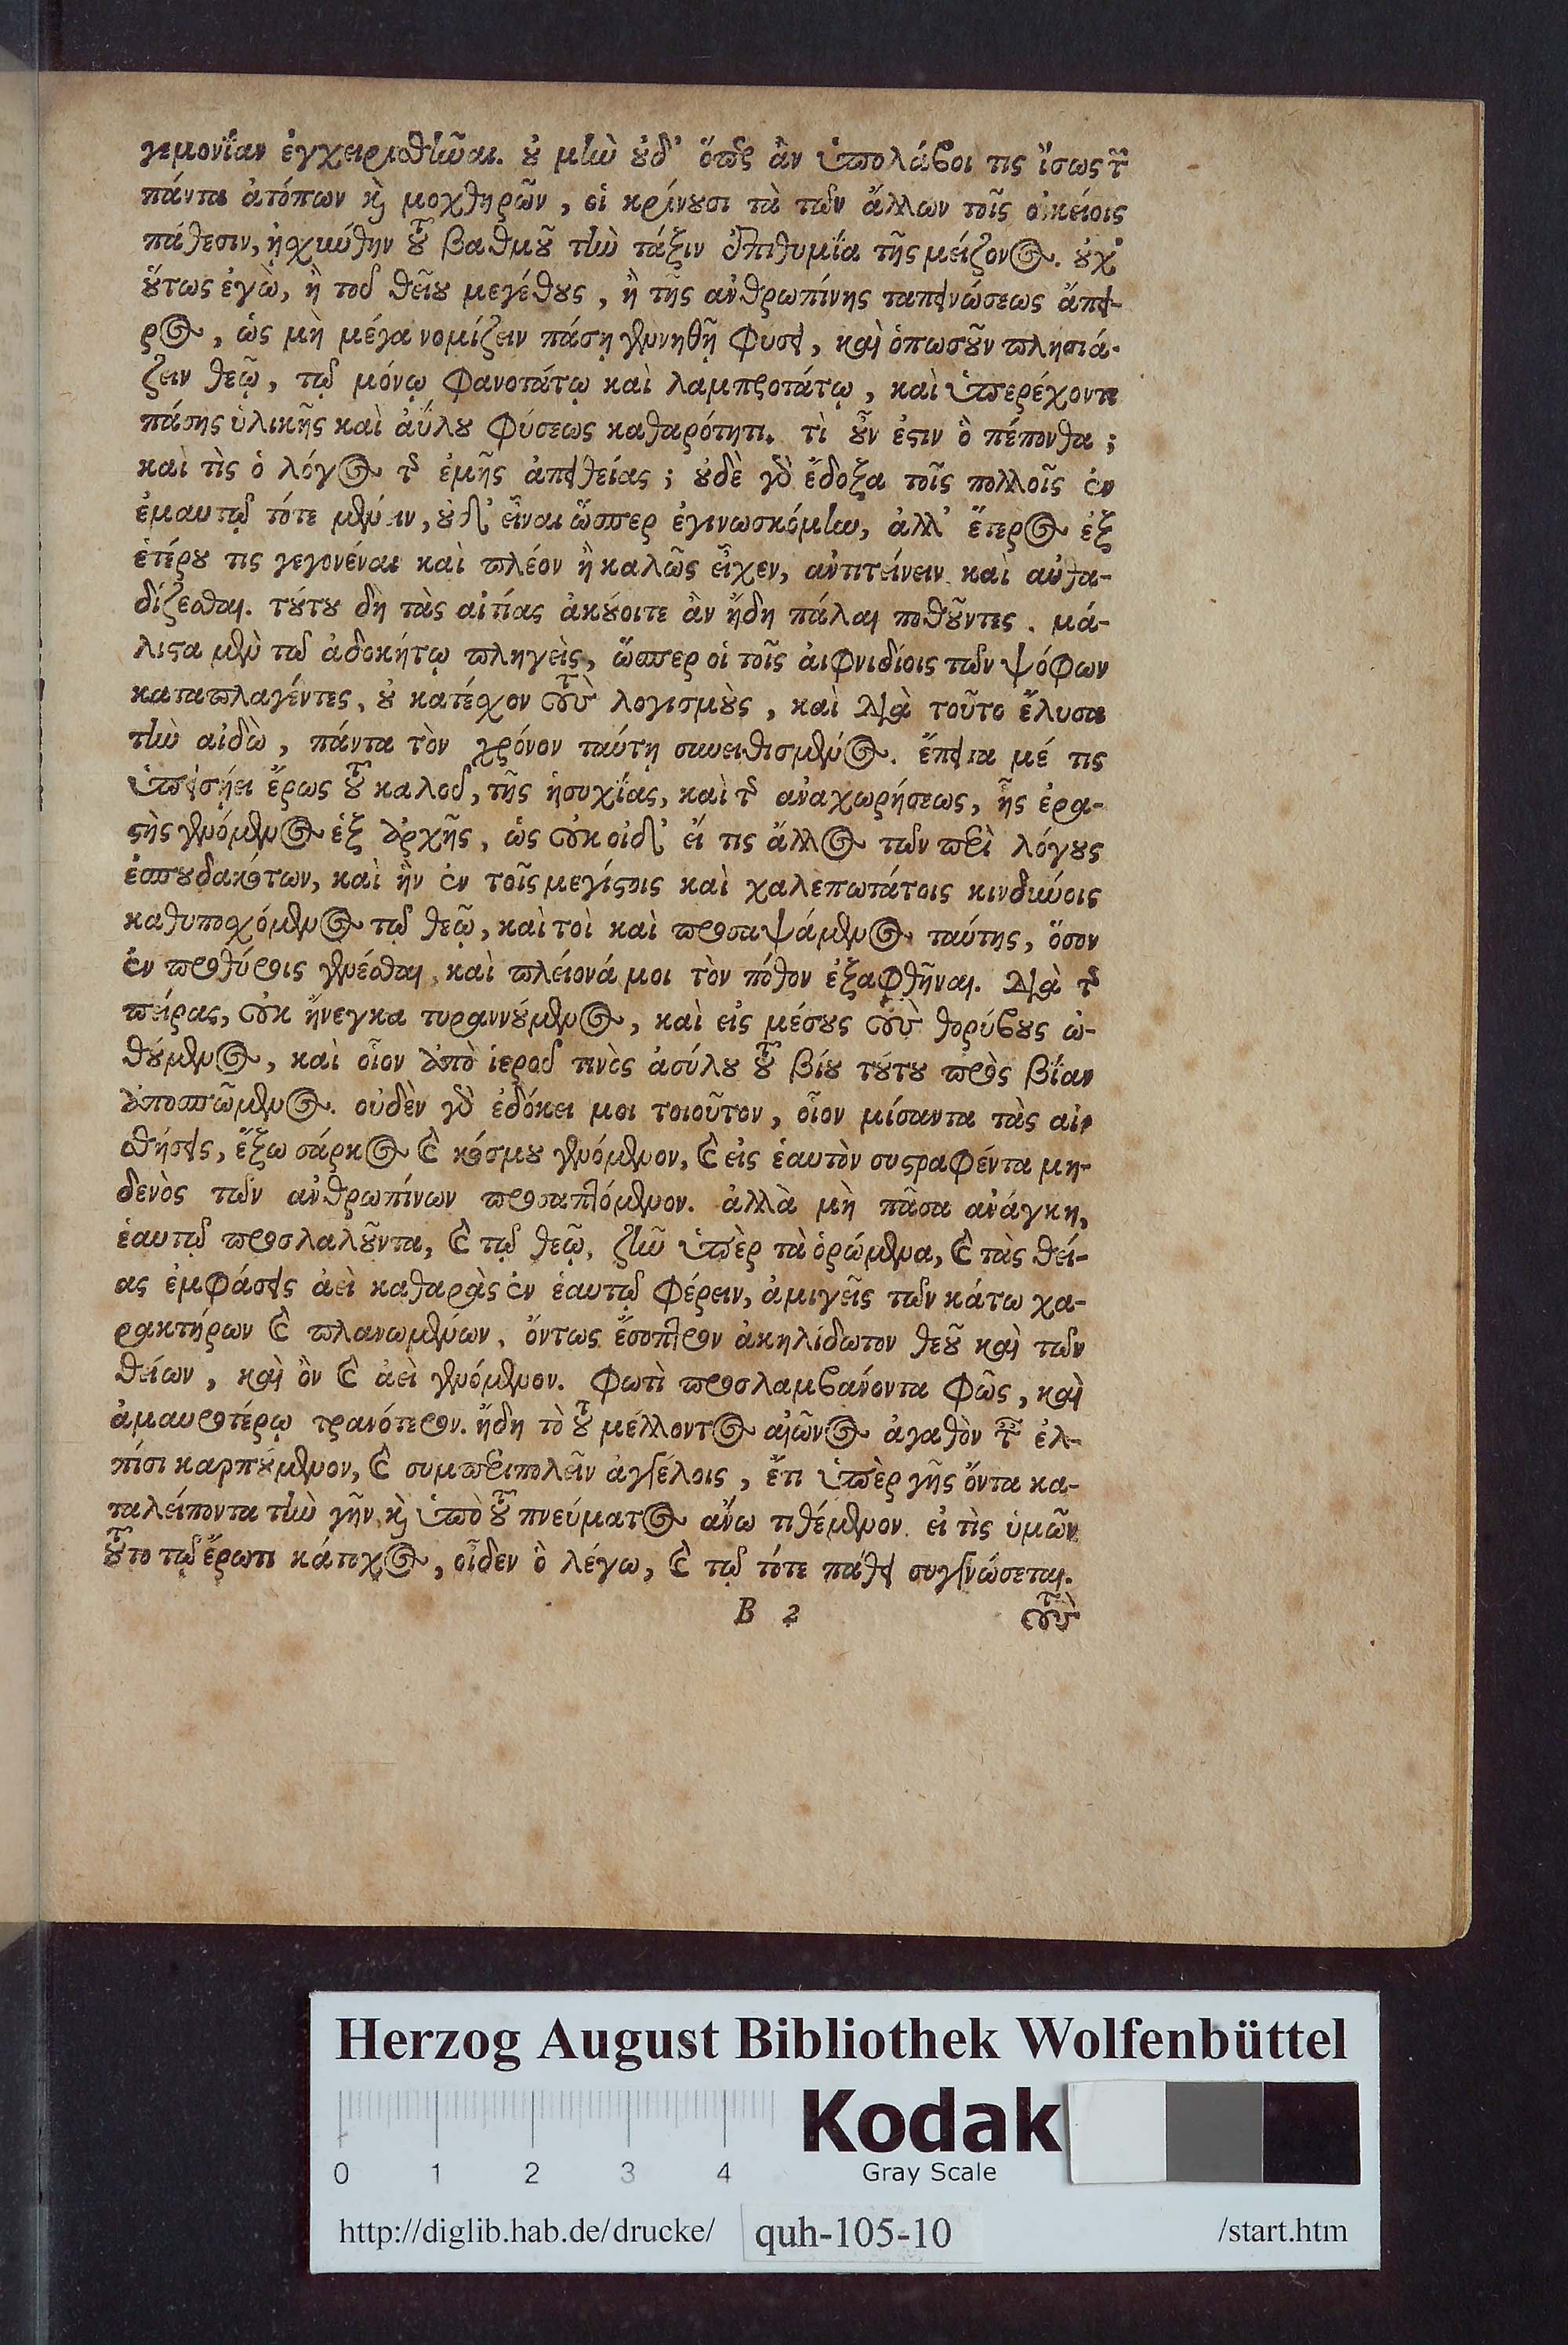 γεμονΐαν ἐγχειρισθῶμαι. οὐ μὴν οὐδ' ὅπερ ἂν ὑπολάβοι τις ἴσως τῶν
πάντα ἀτόπων καὶ μοχθηρῶν, οἱ κρίνουσι τὰ τῶν ἄλλων τοῖς οἰκείοις
πάθεσιν, ᾐσχύνθην τοῦ βαθμοῦ τὴν τάξιν ἐπιθυμΐα τῆς μείζονος. οὐχ
οὕτως ἐγὼ, ἢ τοῦ θείου μεγέθους, ἢ τῆς ἀνθρωπίνης ταπεινώσεως ἄπει-
ρος, ὡς μὴ μέγα νομίζειν πάσῃ γεννηθῇ φύσει, καὶ ὁπωσοῦν πλησιά-
ζειν θεῷ, τῷ μόνῳ φανοτάτῳ καὶ λαμπροτάτῳ, καὶ ὑπερέχοντι
πάσης ὑλικῆς καὶ ἀΰλου φύσεως καθαρότητι. τὶ οὖν ἐστιν ὃ πέπονθα;
καὶ τὶς ὁ λόγος τῆς ἐμῆς ἀπειθείας; οὐδὲ γὰρ ἔδοξα τοῖς πολλοῖς ἐν
ἐμαυτῷ τότε μένειν, οὐδ' εἶναι ὥσπερ ἐγινωσκόμην, ἀλλ' ἕτερος ἐξ
ἑτέρου τις γεγονέναι καὶ πλέον ἢ καλῶς εἶχεν, ἀντιτείνειν καὶ αὐθα-
δίζεσθαι. τούτου δὴ τὰς αἰτίας ἀκούοιτε ἂν ἤδη πάλαι ποθοῦντες. μά-
λιστα μὲν τῷ ἀδοκήτῳ πληγεὶς, ὥσπερ οἱ τοῖς αἰφνιδίοις τῶν ψόφων
καταπλαγέντες, οὐ κατέσχον τοὺς λογισμοὺς, καὶ διὰ τοῦτο ἔλυσα
τὴν αἰδὼ, πάντα τὸν χρόνον ταύτῃ συνειθισμένος. ἔπειτα μέ τις
ὑπεισῄει ἔρως τοῦ καλοῦ, τῆς ἡσυχΐας, καὶ τῆς ἀναχωρήσεως, ἧς ἐρα-
στὴς γενόμενος ἐξ ἀρχῆς, ὡς οὐκ οἶδ' εἴ τις ἄλλος τῶν περὶ λόγους
ἐσπουδακότων, καὶ ἣν ἐν τοῖς μεγίστοις καὶ χαλεπωτάτοις κινδύνοις
καθυποσχόμενος τῷ θεῷ, καὶ τοὶ καὶ προσαψάμενος ταύτης, ὅσον
ἐν προθύροις γενέσθαι, καὶ πλείονά μοι τὸν πόθον ἐξαφθῆναι. διὰ τῆς
πείρας, οὐκ ἤνεγκα τυραννούμενος, καὶ εἰς μέσους τοὺς θορύβους ὠ-
θούμενος, καὶ οἷον ἀπὸ ἱεροῦ τινὸς ἀσύλου τοῦ βίου τούτου πρὸς βΐαν
ἀποσπώμενος. οὐδὲν γὰρ ἐδόκει μοι τοιοῦτον, οἷον μύσαντα τὰς αἰ-
σθήσεις, ἔξω σάρκος καὶ κόσμου γενόμενον, καὶ εἰς ἑαυτὸν συστραφέντα μη-
δενὸς τῶν ἀνθρωπίνων προσαπτόμενον. ἀλλὰ μὴ πᾶσα ἀνάγκη,
ἑαυτῷ προσλαλοῦντα, καὶ τῷ θεῷ, ζῆν ὑπὲρ τὰ ὁρώμενα, καὶ τὰς θεί-
ας ἐμφάσεις ἀεὶ καθαρὰς ἐν ἑαυτῷ φέρειν, ἀμιγεῖς τῶν κάτω χα-
ρακτήρων καὶ πλανωμένων. ὄντως ἔσοπτρον ἀκηλίδωτον θεοῦ καὶ τῶν
θείων, καὶ ὂν καὶ ἀεὶ γενόμενον. φωτὶ προσλαμβάνοντα φῶς, καὶ
ἀμαυροτέρῳ τρανότερον. ἤδη τὸ τοῦ μέλλοντος αἰῶνος ἀγαθὸν ταῖς ἐλ-
πίσι καρπούμενον, καὶ συμπεριπολεῖν ἀγγέλοις, ἔτι ὑπὲρ γῆς ὄντα κα-
ταλείποντα τὴν γῆν, καὶ ὑπὸ τοῦ πνεύματος ἄνω τιθέμενον. εἰ τὶς ὑμῶν
τούτῳ τῷ ἔρωτι κάτοχος, οἶδεν ὃ λέγω, καὶ τῷ τότε πάθει συγγνώσεται.
B 2 τοὺς
Herzog August Bibliothek Wolfenbüttel
Kodak
0 1 2 3 4 Gray Scale
http://diglib.hab.de/drucke/ quh-105-10 /start.htm